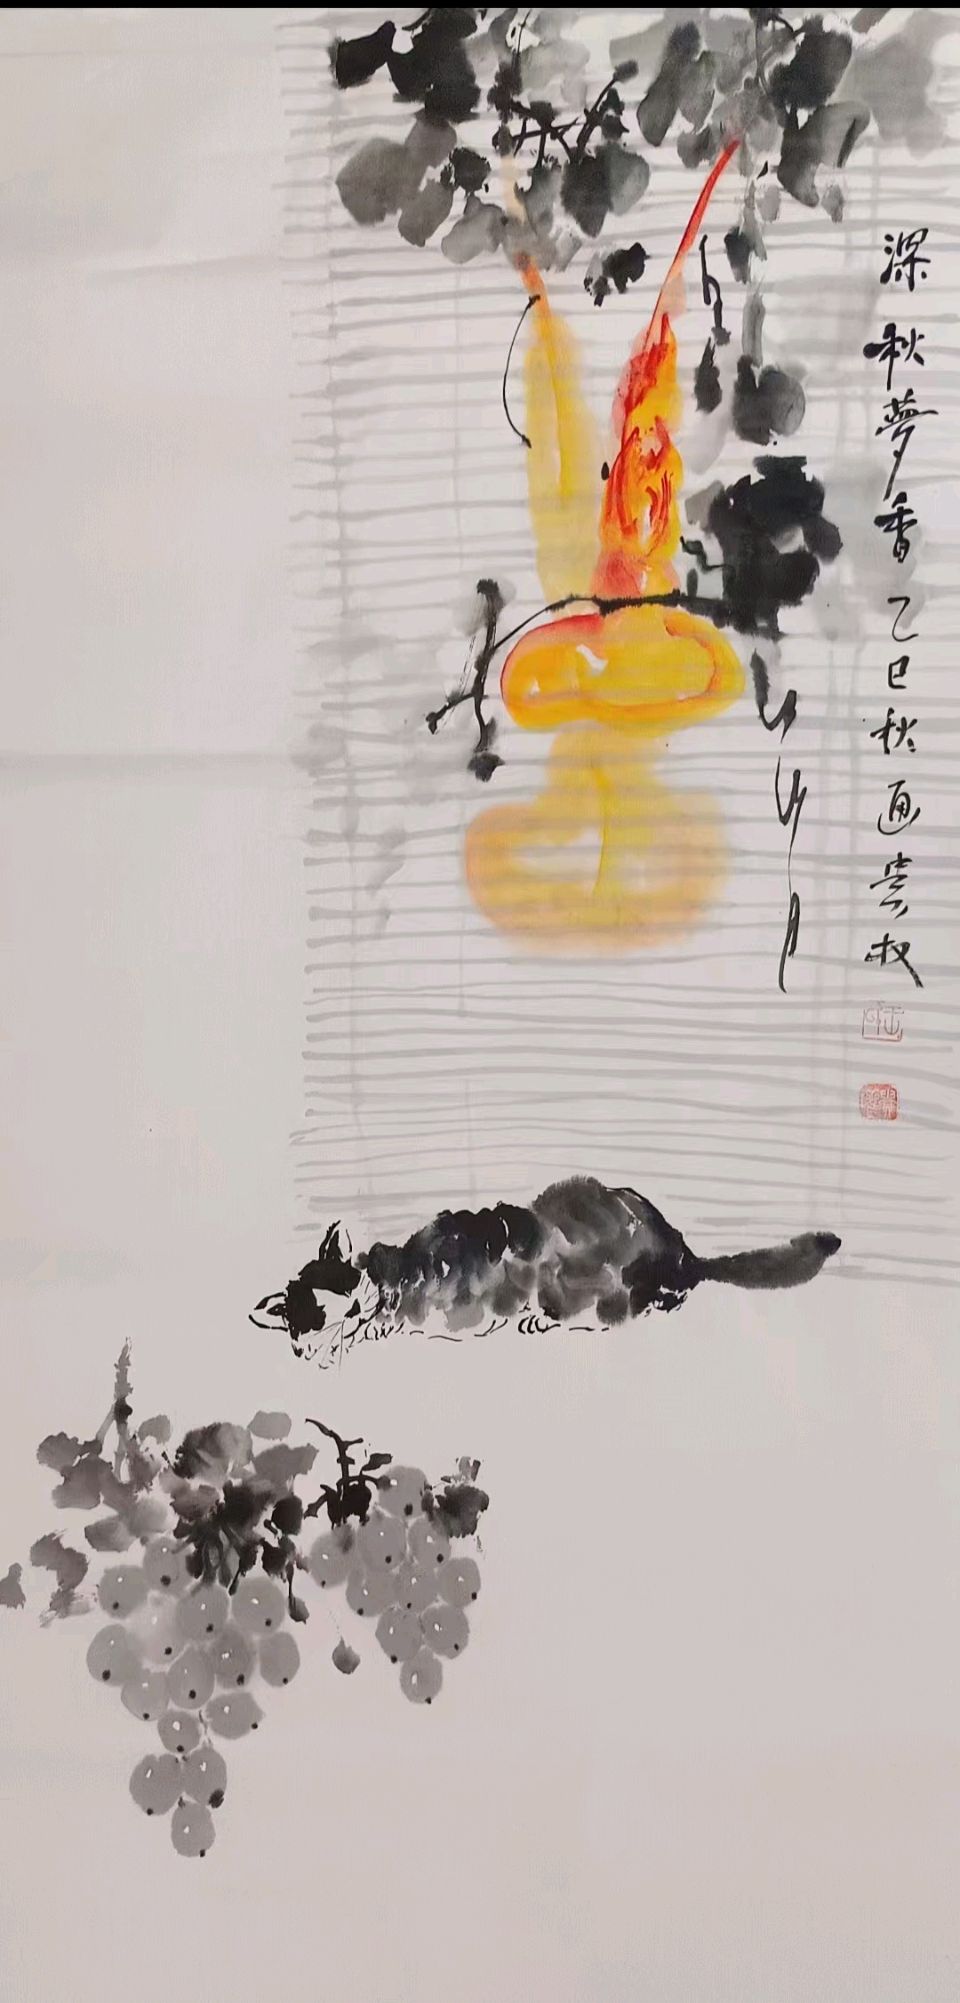 深秋夢香乙巳秋通雲叔